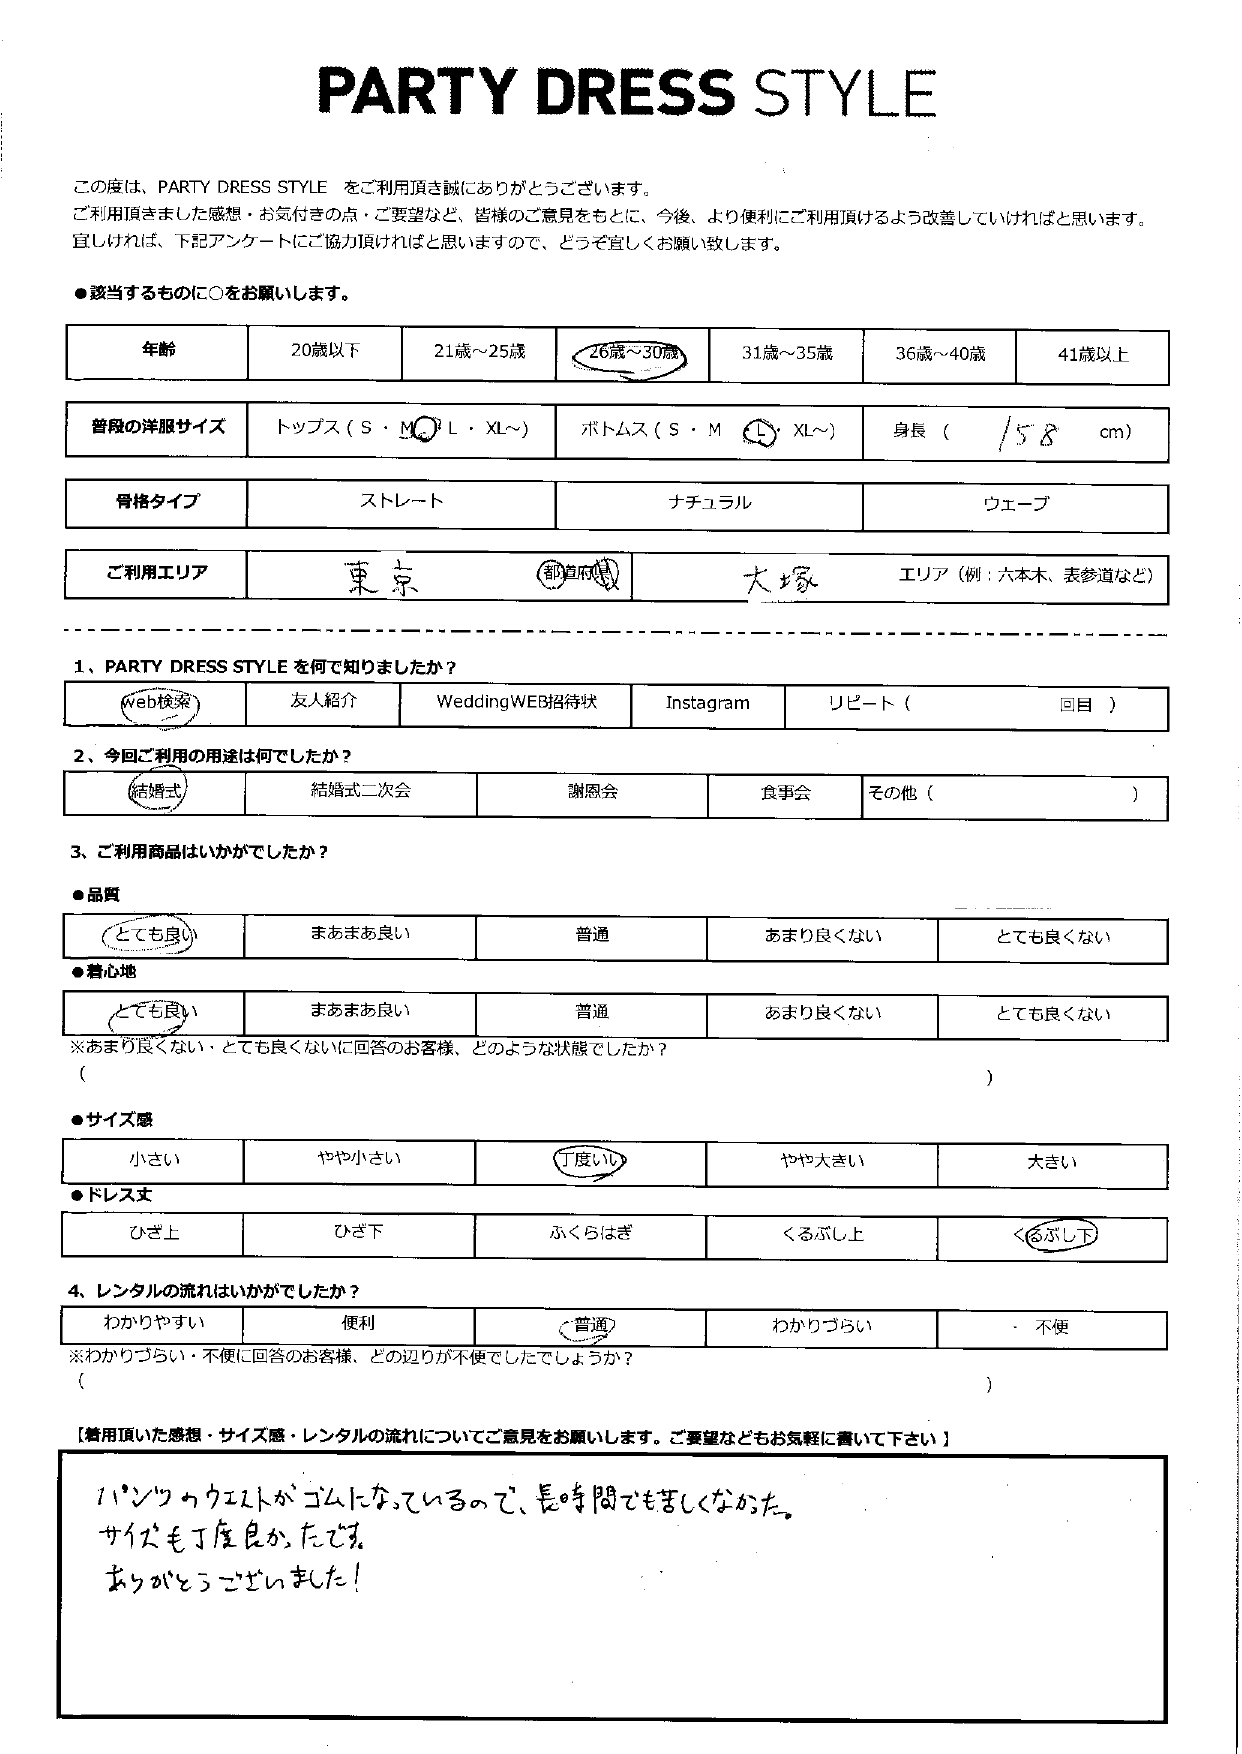 PARTY DRESS STYLE
この度は、PARTY DRESS STYLE をご利用頂き誠にありがとうございます。
ご利用頂きました感想・お気付きの点・ご要望など、皆様のご意見をもとに、今後、より便利にご利用頂けるよう改善していければと思います。
宜しければ、下記アンケートにご協力頂ければと思いますので、どうぞ宜しくお願い致します。
●該当するものに〇をお願いします。
年齢 20歳以下 21歳～25歳 26歳～30歳 31歳～35歳 36歳～40歳 41歳以上
普段の洋服サイズ トップス ( S ・ M ・ L ・ XL～) ボトムス ( S ・ M L ・ XL～) 身長 ( 158 cm)
骨格タイプ ストレート ナチュラル ウェーブ
ご利用エリア 東京 都道府県 大塚 エリア (例：六本木、表参道など)
1、PARTY DRESS STYLE を何で知りましたか？
web検索 友人紹介 WeddingWEB招待状 Instagram リピート ( 回目 )
2、今回ご利用の用途は何でしたか？
結婚式 結婚式二次会 謝恩会 食事会 その他 ( )
3、ご利用商品はいかがでしたか？
●品質
とても良い まあまあ良い 普通 あまり良くない とても良くない
●着心地
とても良い まあまあ良い 普通 あまり良くない とても良くない
※あまり良くない・とても良くないに回答のお客様、どのような状態でしたか？
( )
●サイズ感
小さい やや小さい 丁度いい やや大きい 大きい
●ドレス丈
ひざ上 ひざ下 ふくらはぎ くるぶし上 くるぶし下
4、レンタルの流れはいかがでしたか？
わかりやすい 便利 普通 わかりづらい 不便
※わかりづらい・不便に回答のお客様、どの辺りが不便でしたでしょうか？
( )
【着用頂いた感想・サイズ感・レンタルの流れについてご意見をお願いします。ご要望などもお気軽に書いて下さい 】
パンツのウエストがゴムになっているので、長時間でも苦しくなかった。
サイズも丁度良かったです。
ありがとうございました！